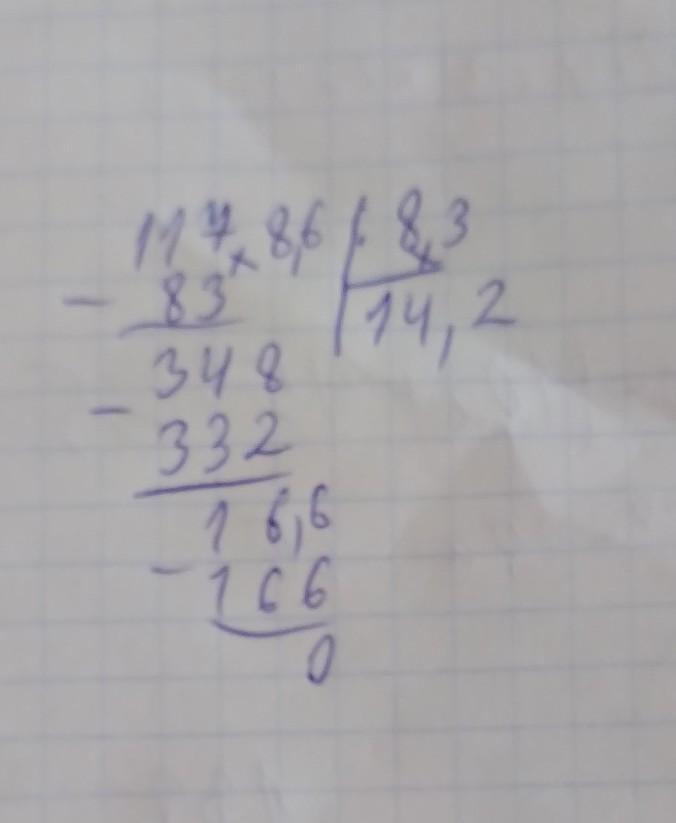 117,8,6 | 8,3
- 83
14,2
348
- 332
16,6
- 166
0